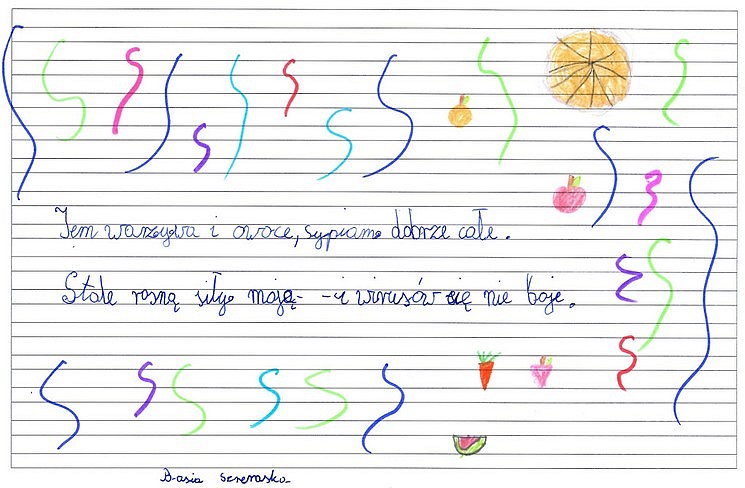 Jem warzywa i owoce, sypiam dobrze całe.
Stale rosną siły moją - - i wirusów się nie boje.
Basia